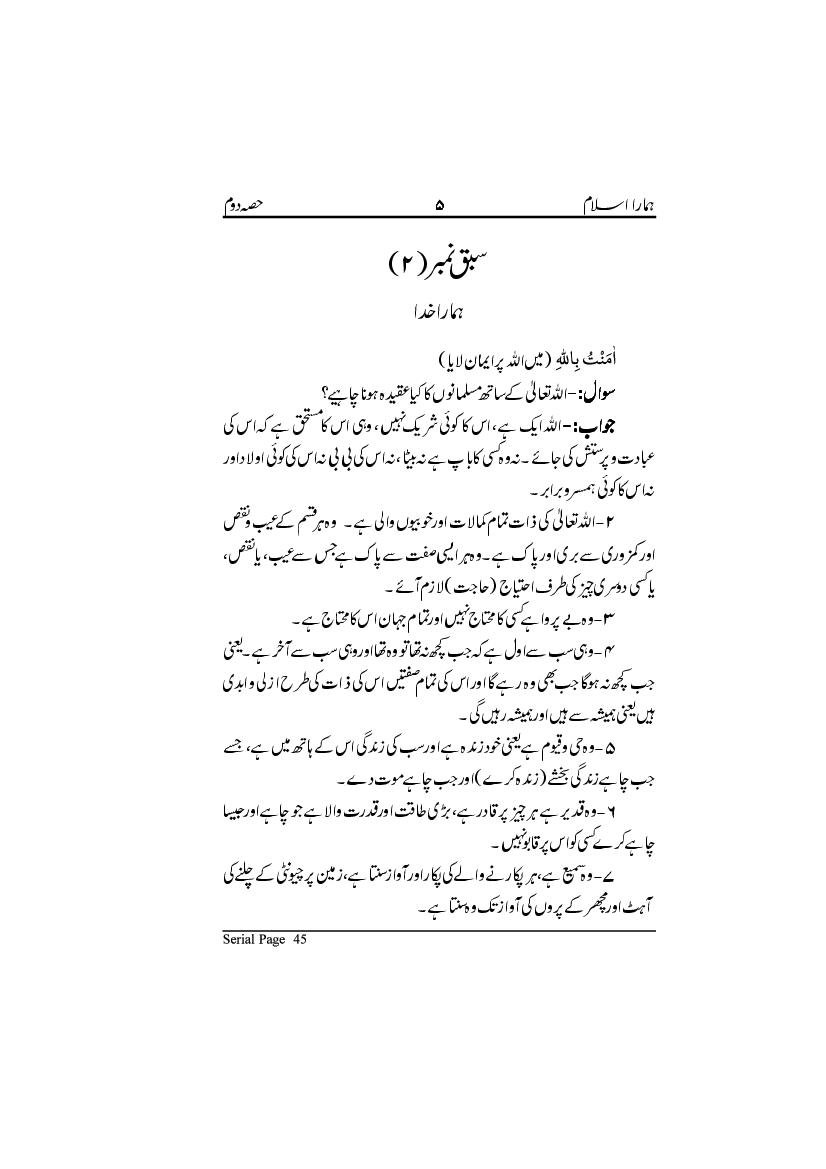 ہمارا اسلام ۵ حصہ دوم
سبق نمبر (۲)
ہمارا خدا
اٰمَنْتُ بِاللهِ (میں اللہ پر ایمان لایا)
سوال:- اللہ تعالیٰ کے ساتھ مسلمانوں کا کیا عقیدہ ہونا چاہیے؟
جواب:- اللہ ایک ہے، اس کا کوئی شریک نہیں، وہی اس کا مستحق ہے کہ اس کی
عبادت و پرستش کی جائے ۔ نہ وہ کسی کا باپ ہے نہ بیٹا، نہ اس کی بی بی نہ اس کی کوئی اولاد اور
نہ اس کا کوئی ہمسر و برابر ۔
۲- اللہ تعالیٰ کی ذات تمام کمالات اور خوبیوں والی ہے ۔ وہ ہر قسم کے عیب و نقص
اور کمزوری سے بری اور پاک ہے۔ وہ ہر ایسی صفت سے پاک ہے جس سے عیب، یا نقص،
یا کسی دوسری چیز کی طرف احتیاج (حاجت) لازم آئے ۔
۳- وہ بے پروا ہے کسی کا محتاج نہیں اور تمام جہان اس کا محتاج ہے ۔
۴- وہی سب سے اول ہے کہ جب کچھ نہ تھا تو وہ تھا اور وہی سب سے آخر ہے ۔ یعنی
جب کچھ نہ ہوگا جب بھی وہ رہے گا اور اس کی تمام صفتیں اس کی ذات کی طرح ازلی و ابدی
ہیں یعنی ہمیشہ سے ہیں اور ہمیشہ رہیں گی ۔
۵- وہ حی و قیوم ہے یعنی خود زندہ ہے اور سب کی زندگی اس کے ہاتھ میں ہے، جسے
جب چاہے زندگی بخشے (زندہ کرے) اور جب چاہے موت دے ۔
۶- وہ قدیر ہے ہر چیز پر قادر ہے، بڑی طاقت اور قدرت والا ہے جو چاہے اور جیسا
چاہے کرے کسی کو اس پر قابو نہیں ۔
۷- وہ سمیع ہے، ہر پکارنے والے کی پکار اور آواز سنتا ہے، زمین پر چیونٹی کے چلنے کی
آہٹ اور مچھر کے پروں کی آواز تک وہ سنتا ہے ۔
Serial Page 45